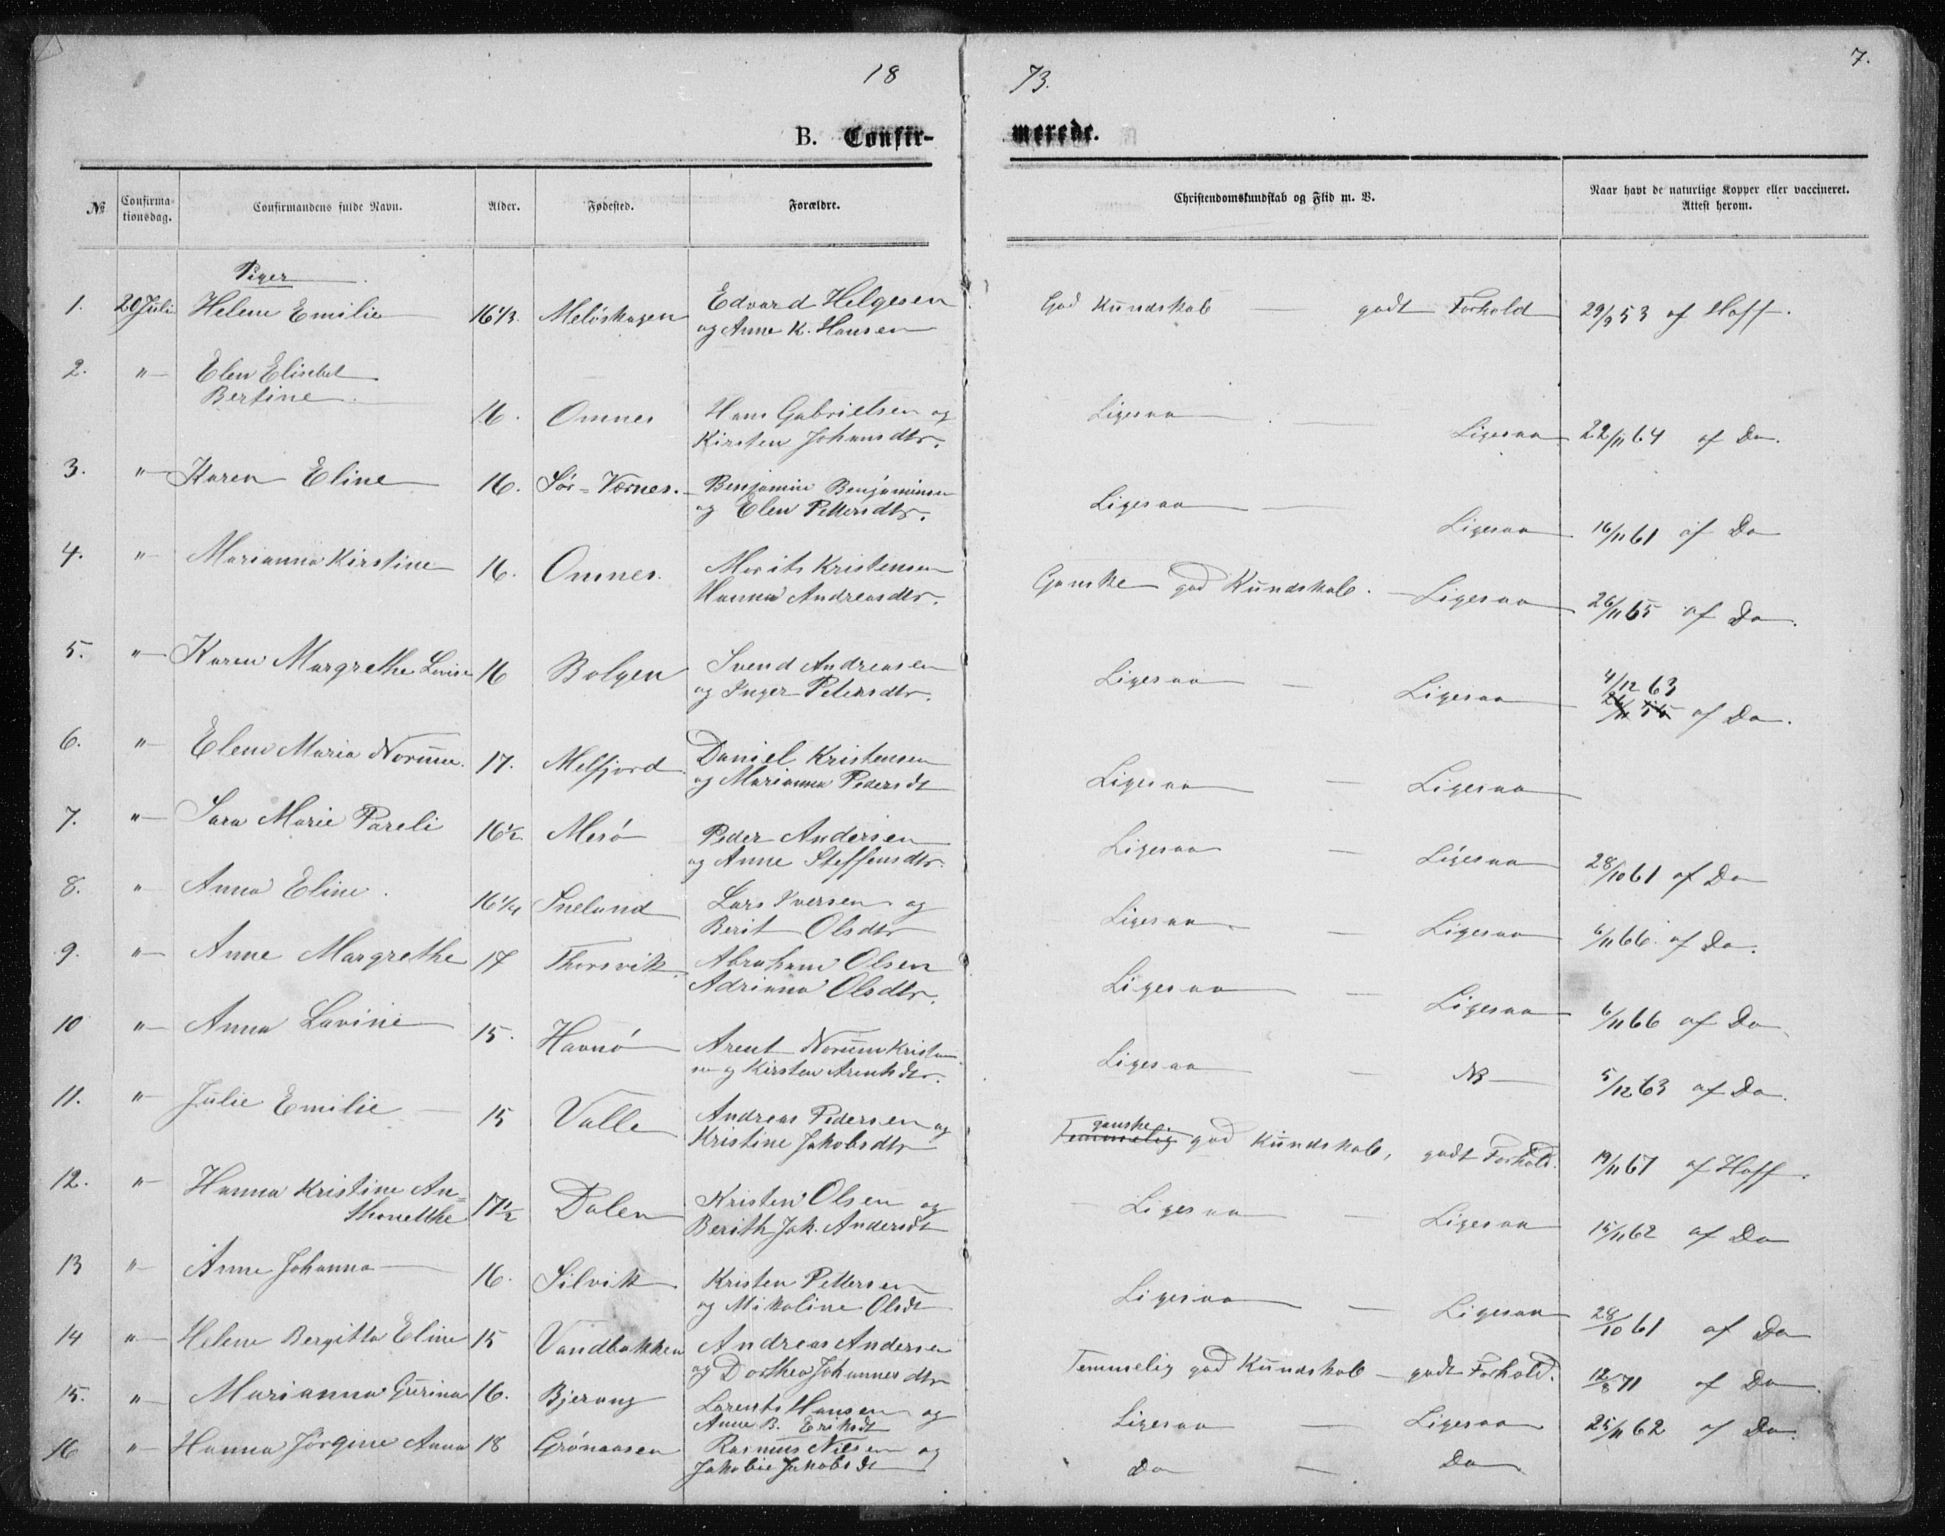 18 73. 7.
B. Confir- merede.
№ Confirmationsdag. Confirmandens fulde Navn. Alder. Fødested. Forældre. Christendomskundskab og Flid m. V. Naar havt de naturlige Kopper eller vaccineret. Attest herom.
Piger
1. 20 Juli Helene Emilie 16 1/3. Meløskagen Edvard Helgesen og Anne K. Hansen God Kundskab — godt Forhold 29/9 53 af Hoff.
2. " Elen Elisebet Bertine 16. Omnes Hans Gabrielsen og Kirsten Johansdtr. Ligesaa — Ligesaa 22/11 64 af Do.
3. " Karen Eline 16. Sør-Værnes. Benjamin Benjaminsen og Elen Pettersdtr. Ligesaa — Ligesaa 16/11 61 af Do
4. " Marianna Kirstine 16. Omnes. Morits Kristensen Hanna Andreasdtr. Ganske god Kundskab. — Ligesaa 26/11 65 af Do.
5. " Karen Margrethe Lovise 16 Bolgen Svend Andreasen og Inger Petersdtr. Ligesaa — Ligesaa 4/12 63
af Do.
6. " Elene Maria Norum. 17. Melfjord Daniel Kristensen og Marianna Pedersdt Ligesaa — Ligesaa
7. " Sara Marie Pareli 16 1/2 Mesø Peder Andersen og Anne Steffensdtr. Ligesaa — Ligesaa 28/10 61 af Do
8. " Anna Eline. 16 1/4 Sneland Lars Iversen og Berit Olsdtr Ligesaa — Ligesaa 6/11 66. af Do.
9. " Anne Margrethe 17 Thorsvik Abraham Olsen Adriana Olsdtr. Ligesaa — Ligesaa 6/11 66 af Do.
10 " Anna Lavine 15. Havnø Arent Norum Kristensen og Kirsten Arentsdtr. Ligesaa — NB 5/12 63 af Do.
11. " Julie Emilie 15 Valle Andreas Pedersen og Kristine Jakobsdtr Temmelig ganske god Kundskab, godt Forhold. 19/11 67 af Hoff.
12. " Hanna Kristine An=thonethe 17 1/2 Dalen Kristen Olsen og Berith Joh. Andersdt Ligesaa — Ligesaa 15/11 62 af Do
13 " Anne Johanna 16. Silvik Kristen Pettersen og Mikaline Olsdt Ligesaa — Ligesaa 28/10 61 af Do
14 " Helene Bergitta Eline 15 Vandbakken Andreas Andersen og Dorthea Johannesdtr Temmelig god Kundskab — godt Forhold. 12/8 71 af Do.
15. " Marianna Gurina 16. Bjerang Lorents Hansen og Anne B. Eriksdt Ligesaa — Ligesaa 25/11 62 af Do.
16 " Hanna Jørgine Anna 18 Grønaasen Rasmus Nilsen og Jakobie Jakobsdt Do — Do.